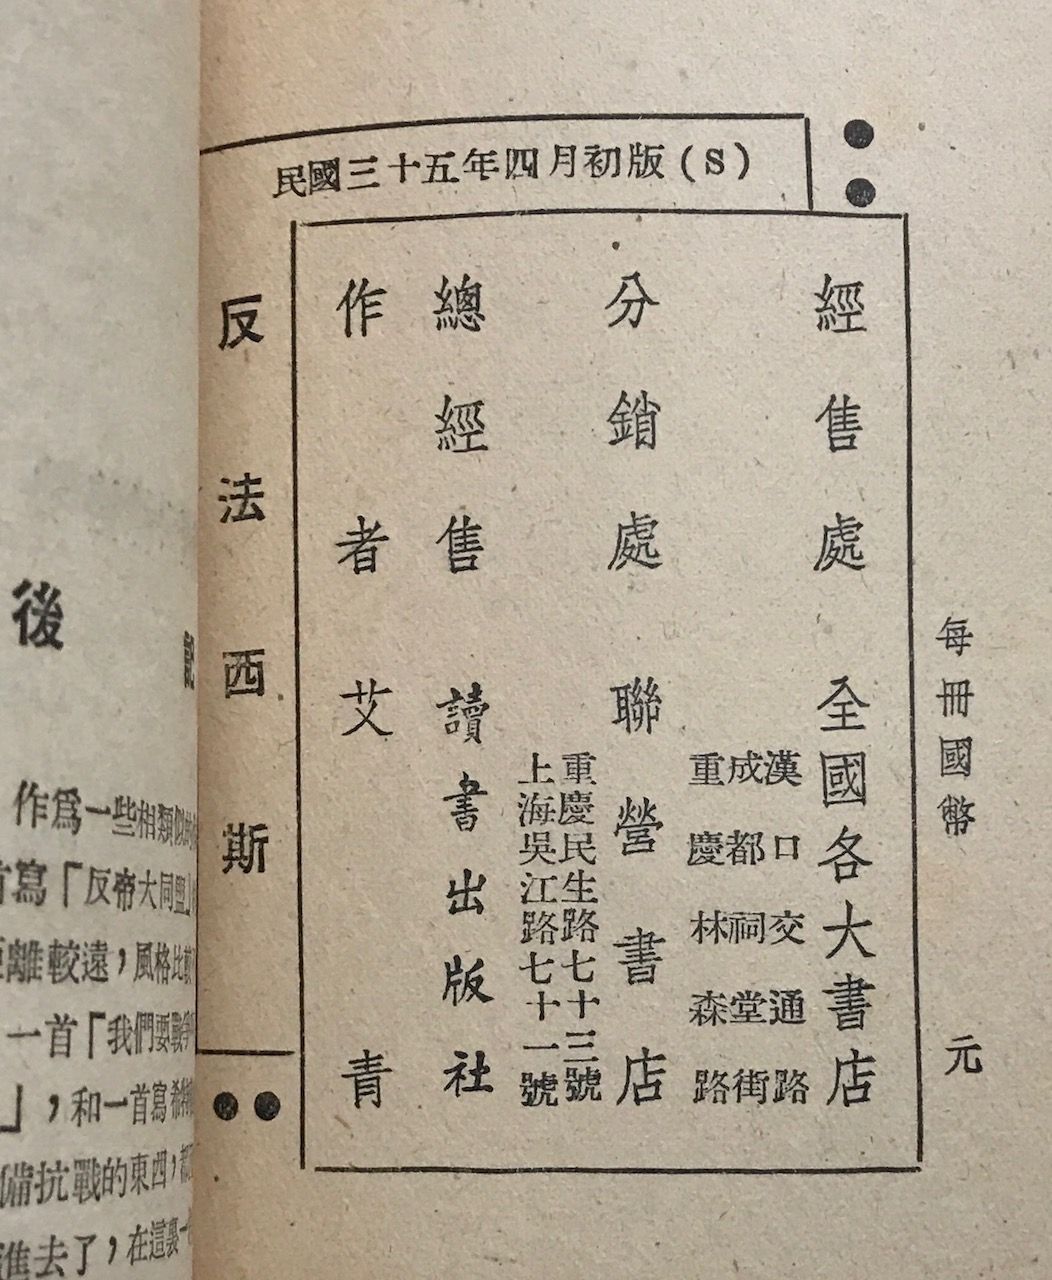 後 記
作爲一些相類似的
寫「反帝大同盟」
離較遠，風格比較
一首「我們要戰爭
」，和一首寫希特
備抗戰的東西，都
進去了，在這裏一
民國三十五年四月初版(S)
反法西斯
作者 艾青
總經售 讀書出版社
上海吳江路七十一號
重慶民生路七十三號
分銷處 聯營書店
重慶林森路
成都祠堂街
漢口交通路
經售處 全國各大書店
每冊國幣 元